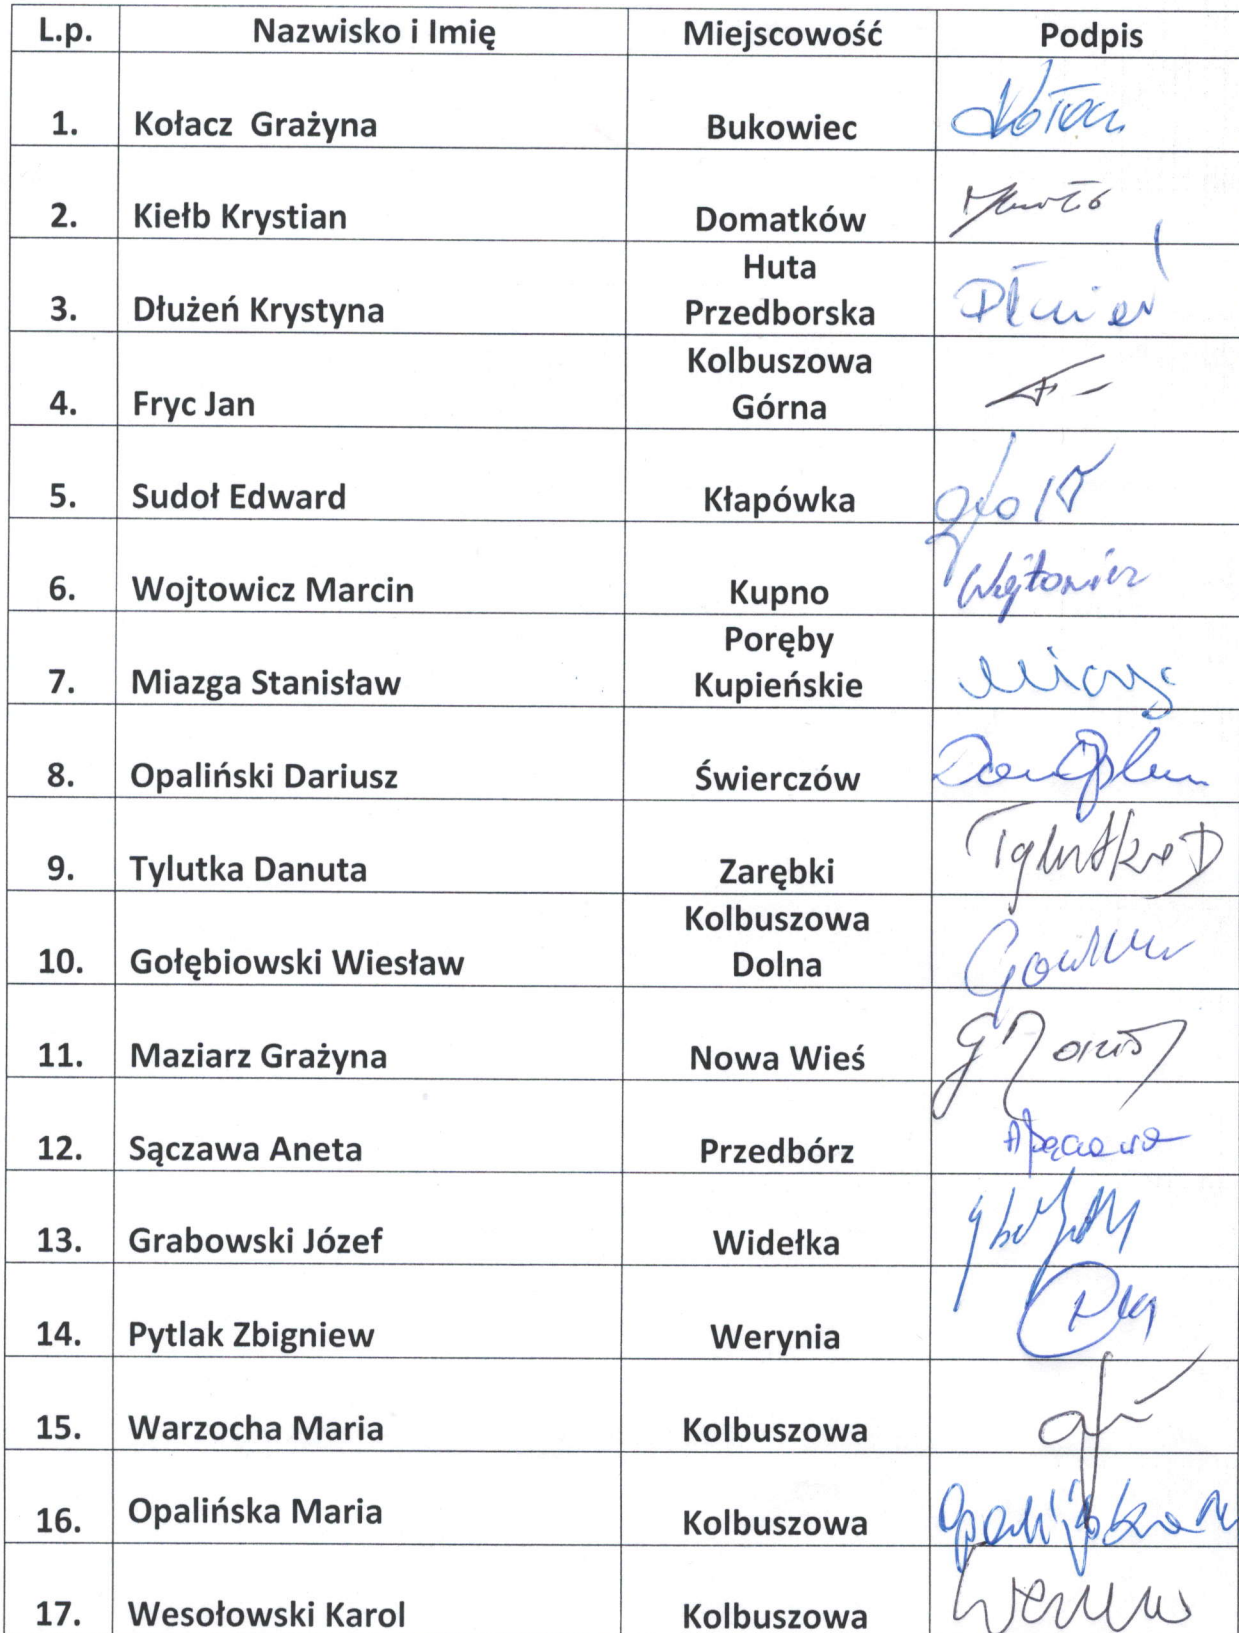 L.p. Nazwisko i Imię Miejscowość Podpis
1. Kołacz Grażyna Bukowiec Kołacz
2. Kiełb Krystian Domatków
Huta
3. Dłużeń Krystyna Przedborska Dłużeń
Kolbuszowa
4. Fryc Jan Górna
5. Sudoł Edward Kłapówka
6. Wojtowicz Marcin Kupno Wojtowicz
Poręby
7. Miazga Stanisław Kupieńskie
8. Opaliński Dariusz Świerczów
9. Tylutka Danuta Zarębki Tylutka D
Kolbuszowa
10. Gołębiowski Wiesław Dolna
11. Maziarz Grażyna Nowa Wieś
12. Sączawa Aneta Przedbórz
13. Grabowski Józef Widełka
14. Pytlak Zbigniew Werynia
15. Warzocha Maria Kolbuszowa
16. Opalińska Maria Kolbuszowa Opalińska M
17. Wesołowski Karol Kolbuszowa